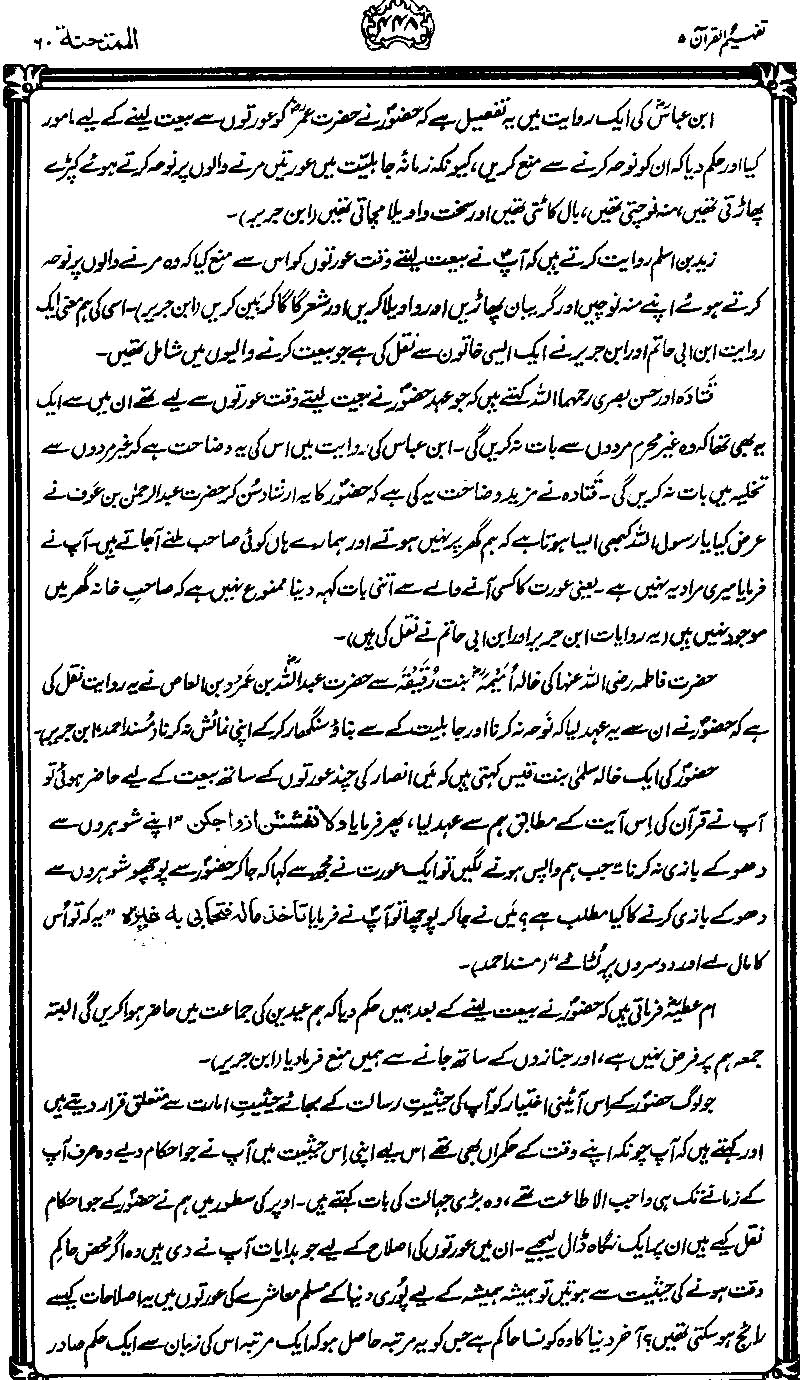 تفہیم القرآن ۵
۴۴۸
الممتحنۃ ۶۰
ابن عباسؓ کی ایک روایت میں یہ تفصیل ہے کہ حضورؐ نے حضرت عمرؓ کو عورتوں سے بیعت لینے کے لیے مامور
کیا اور حکم دیا کہ ان کو نوحہ کرنے سے منع کریں، کیونکہ زمانۂ جاہلیت میں عورتیں مرنے والوں پر نوحہ کرتے ہوئے کپڑے
پھاڑتی تھیں، منہ نوچتی تھیں، بال کاٹتی تھیں اور سخت واویلا مچاتی تھیں (ابن جریر)۔
زید بن اسلم روایت کرتے ہیں کہ آپؐ نے بیعت لیتے وقت عورتوں کو اس سے منع کیا کہ وہ مرنے والوں پر نوحہ
کرتے ہوئے اپنے منہ نوچیں اور گریبان پھاڑیں اور واویلا کریں اور شعر گا گا کر بَین کریں (ابن جریر)۔ اسی کی ہم معنی ایک
روایت ابن ابی حاتم اور ابن جریر نے ایک ایسی خاتون سے نقل کی ہے جو بیعت کرنے والیوں میں شامل تھیں۔
قَتَادہ اور حسن بصری رحمہما اللہ کہتے ہیں کہ جو عہد حضورؐ نے بیعت لیتے وقت عورتوں سے لیے تھے ان میں سے ایک
یہ بھی تھا کہ وہ غیر محرم مردوں سے بات نہ کریں گی۔ ابن عباس کی روایت میں اس کی یہ وضاحت ہے کہ غیر مردوں سے
تخلیہ میں بات نہ کریں گی۔ قتادہ نے مزید وضاحت یہ کی ہے کہ حضورؐ کا یہ ارشاد سُن کر حضرت عبدالرحمٰن بن عوف نے
عرض کیا یا رسول اللہ کبھی ایسا ہوتا ہے کہ ہم گھر پر نہیں ہوتے اور ہمارے ہاں کوئی صاحب ملنے آجاتے ہیں۔ آپ نے
فرمایا میری مراد یہ نہیں ہے۔ یعنی عورت کا کسی آنے والے سے اتنی بات کہہ دینا ممنوع نہیں ہے کہ صاحبِ خانہ گھر میں
موجود نہیں ہیں (یہ روایات ابن جریر اور ابن ابی حاتم نے نقل کی ہیں)۔
حضرت فاطمہ رضی اللہ عنہا کی خالہ اُمَیْمَہؓ بنت رُقَیْقَہ سے حضرت عبداللہؓ بن عَمْرو بن العاص نے یہ روایت نقل کی
ہے کہ حضورؐ نے ان سے یہ عہد لیا کہ نَوحہ نہ کرنا اور جاہلیت کے سے بناؤ سنگھار کر کے اپنی نمائش نہ کرنا (مُسند احمد، ابن جریر)۔
حضورؐ کی ایک خالہ سلمٰی بنت قیس کہتی ہیں کہ مَیں انصار کی چند عورتوں کے ساتھ بیعت کے لیے حاضر ہوئی تو
آپ نے قرآن کی اِس آیت کے مطابق ہم سے عہد لیا، پھر فرمایا ولا تغششن ازواجکن ”اپنے شوہروں سے
دھوکے بازی نہ کرنا“ جب ہم واپس ہونے لگیں تو ایک عورت نے مجھ سے کہا کہ جا کر حضورؐ سے پوچھو شوہروں سے
دھوکے بازی کرنے کا کیا مطلب ہے؟ مَیں نے جا کر پوچھا تو آپؐ نے فرمایا تأخذ مالہ فتحابی بہ غیرہ ”یہ کہ تو اُس
کا مال لے اور دوسروں پر لُٹائے“ (مسند احمد)۔
ام عطیہؓ فرماتی ہیں کہ حضورؐ نے بیعت لینے کے بعد ہمیں حکم دیا کہ ہم عیدین کی جماعت میں حاضر ہوا کریں گی البتہ
جمعہ ہم پر فرض نہیں ہے، اور جنازوں کے ساتھ جانے سے ہمیں منع فرما دیا (ابن جریر)۔
جو لوگ حضورؐ کے اِس آئینی اختیار کو آپ کی حیثیتِ رسالت کے بجائے حیثیتِ امارت سے متعلق قرار دیتے ہیں
اور کہتے ہیں کہ آپ چونکہ اپنے وقت کے حکمراں بھی تھے اس لیے اپنی اِس حیثیت میں آپ نے جو احکام دیے وہ صرف آپ
کے زمانے تک ہی واجب الاطاعت تھے، وہ بڑی جہالت کی بات کہتے ہیں۔ اوپر کی سطور میں ہم نے حضورؐ کے جو احکام
نقل کیے ہیں ان پر ایک نگاہ ڈال لیجیے۔ ان میں عورتوں کی اصلاح کے لیے جو ہدایات آپ نے دی ہیں وہ اگر محض حاکمِ
وقت ہونے کی حیثیت سے ہوتیں تو ہمیشہ ہمیشہ کے لیے پُوری دنیا کے مسلم معاشرے کی عورتوں میں یہ اصلاحات کیسے
رائج ہو سکتی تھیں؟ آخر دنیا کا وہ کونسا حاکم ہے جس کو یہ مرتبہ حاصل ہو کہ ایک مرتبہ اس کی زبان سے ایک حکم صادر